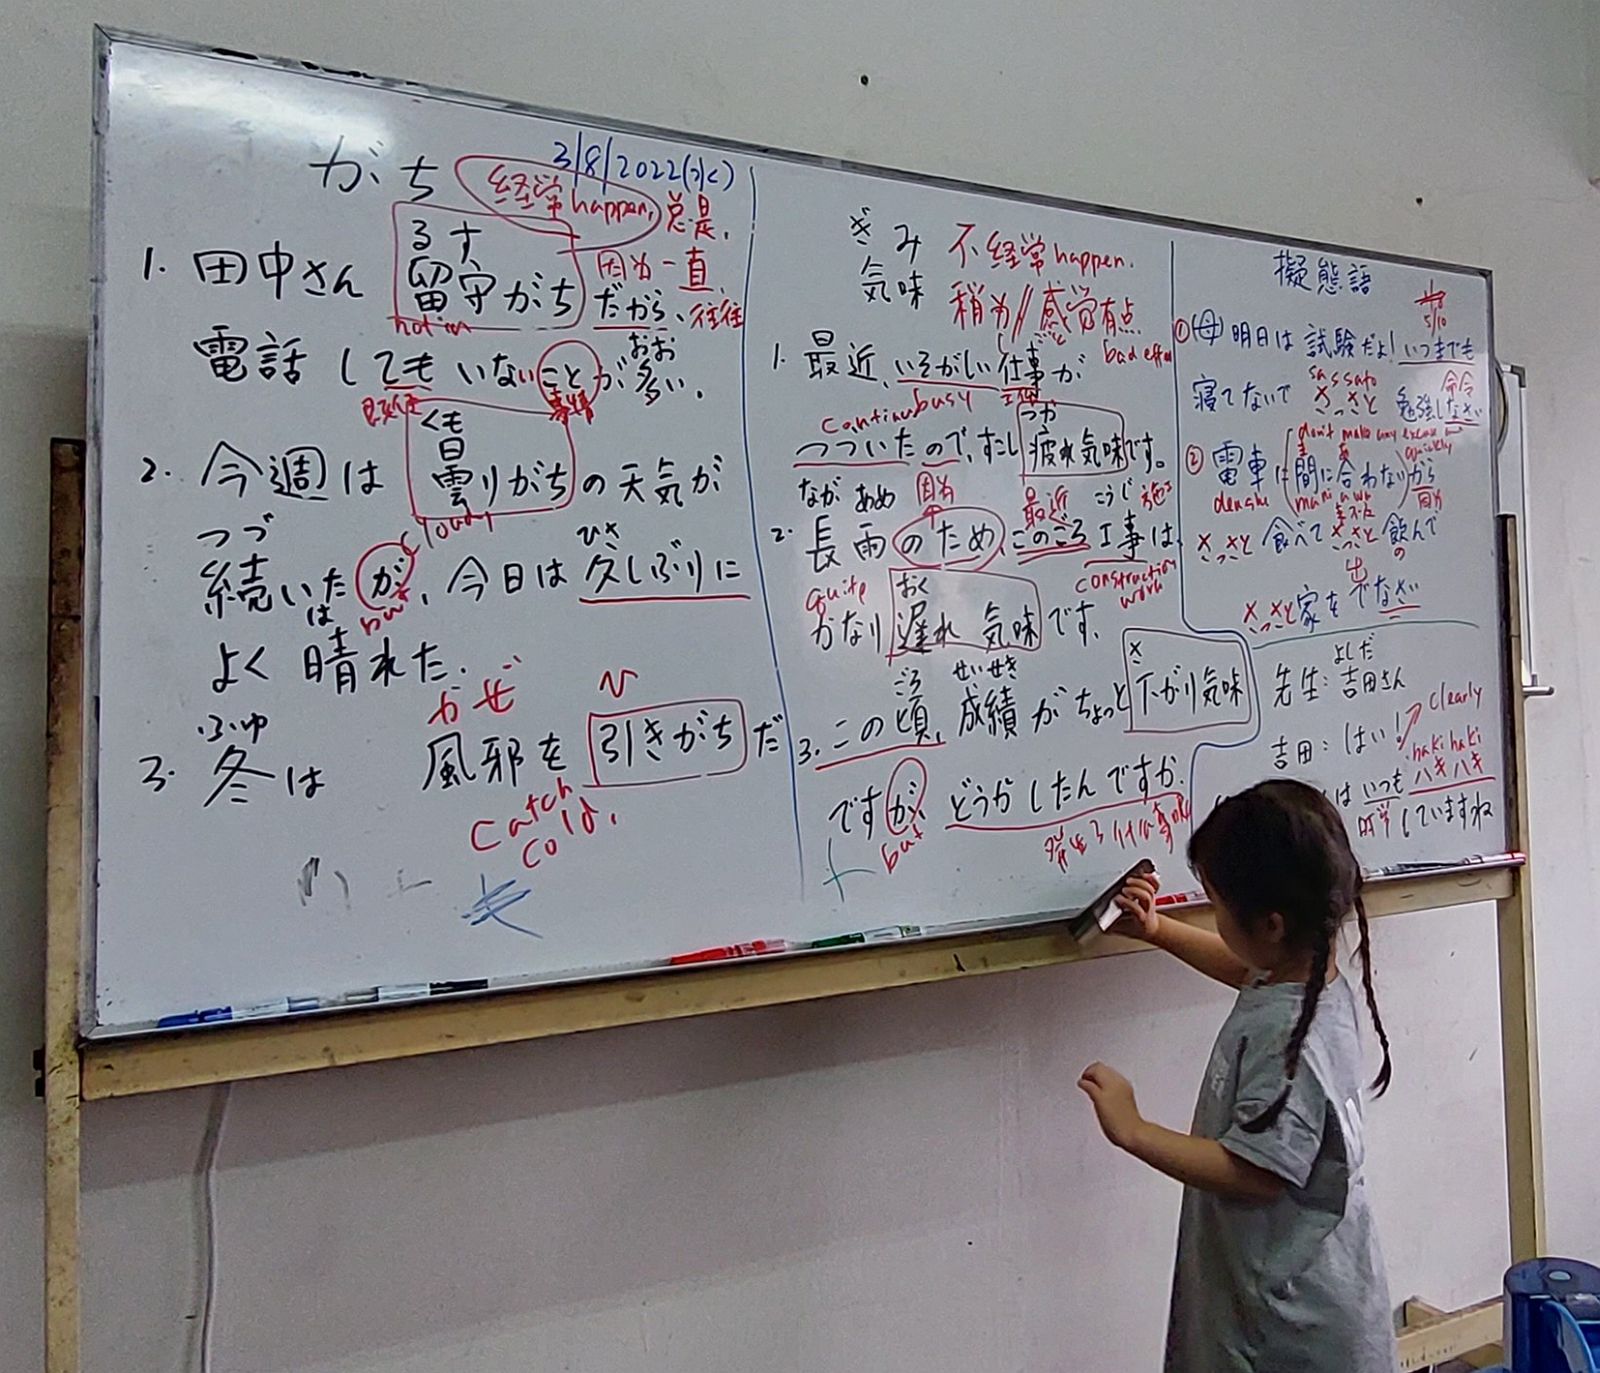 3/8/2022(水)
がち 経常happen, 总是,
るす 因为一直,
1. 田中さん 留守がちだから、往往
not in
電話してもいないことが多い.
おお
事情
くも
2. 今週は 曇りがちの天気が
cloudy
つづ ひさ
続いたが、今日は久しぶりに
but
は
よく晴れた.
ふゆ かぜ ひ
3. 冬は 風邪を引きがちだ
catch
cold.
ぎみ 不经常happen.
気味 稍为//感觉有点
bad effe
しごと
1. 最近、いそがしい仕事が
continu busy 工作
つか
つづいたので、すこし疲れ気味です。
ながあめ 因为 最近 こうじ
2. 長雨のため、このごろ工事は、
quite おく construction
work
かなり遅れ気味です、
ごろ せいせき さ
3. この頃、成績がちょっと下がり気味
ですが、どうかしたんですか.
but
擬態語
5/10
①(母)明日は試験だよ!いつまでも
sassato 命令
寝てないで さっさと 勉強しなさい
don't make any excuse and
quickly
② 電車は(間に合わない)から
densha ma ni a wa 因为
さっさと食べて さっさと飲んで
の
さっさと家をでなさい
出
よしだ
先生:吉田さん
clearly
吉田:はい!
haki haki
ハキハキ
はいつも
していますね